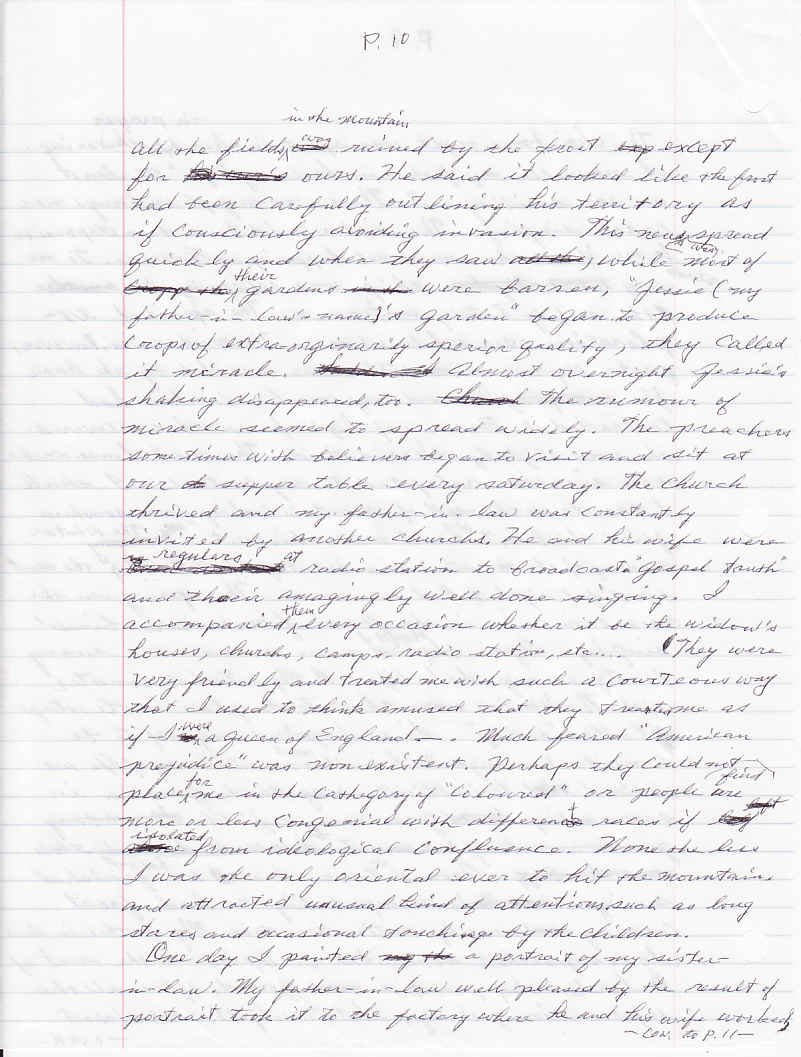 P. 10
in the mountain
all the fields was ruined by the frost except
for ours. He said it looked like the frost
had been carefully outlining his territory as
if consciously avoiding invasion. This news spread
quickly and when they saw, while most of
their gardens were barren, "Jessie (my
father-in-law's name)'s garden" began to produce
crops of extra-orginarily sperior quality, they called
it miracle. Almost overnight Jessie's
shaking disappeared, too. The rumour of
miracle seemed to spread widely. The preachers
sometimes with believers began to visit and sit at
our supper table every saturday. The church
thrived and my father-in-law was constantly
invited by another churchs. He and his wife were
regulars at radio station to broadcast "gospel truth"
and their amagingly well done singing. I
accompanied them every occasion whether it be the widow's
houses, churchs, camps, radio station, etc... They were
very friendly and treated me with such a courteous way
that I used to think amused that they treat me as
if I were a queen of England —. Much feared "American
prejudice" was non existent. Perhaps they could not find
place for me in the cathegory of "Coloured" or people are
more or less congenial with different races if left
isolated from ideological confluence. None the less
I was the only oriental ever to hit the mountain
and attracted unusual kind of attentions such as long
stares and occasional touchings by the children.
One day I painted a portrait of my sister-
in-law. My father-in-law well pleased by the result of
portrait took it to the factory where he and his wife worked,
— con. to P. 11 —